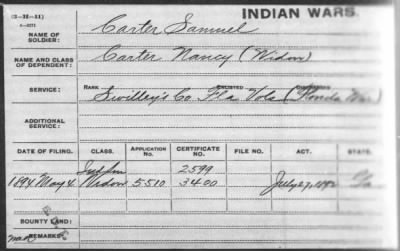 INDIAN WARS.
(3-32-11)
NAME OF SOLDIER: Carter Samuel
NAME AND CLASS OF DEPENDENT: Carter Nancy (Widow)
RANK ENLISTED DISCHARGED
SERVICE: Swilley's Co. Fla Vols (Florida War)
ADDITIONAL SERVICE:
DATE OF FILING. CLASS. APPLICATION NO. CERTIFICATE NO. FILE NO. ACT. STATE.
2599
1894 May 4 Widow 5510 3400 July 27, 1892
BOUNTY LAND:
REMARKS: